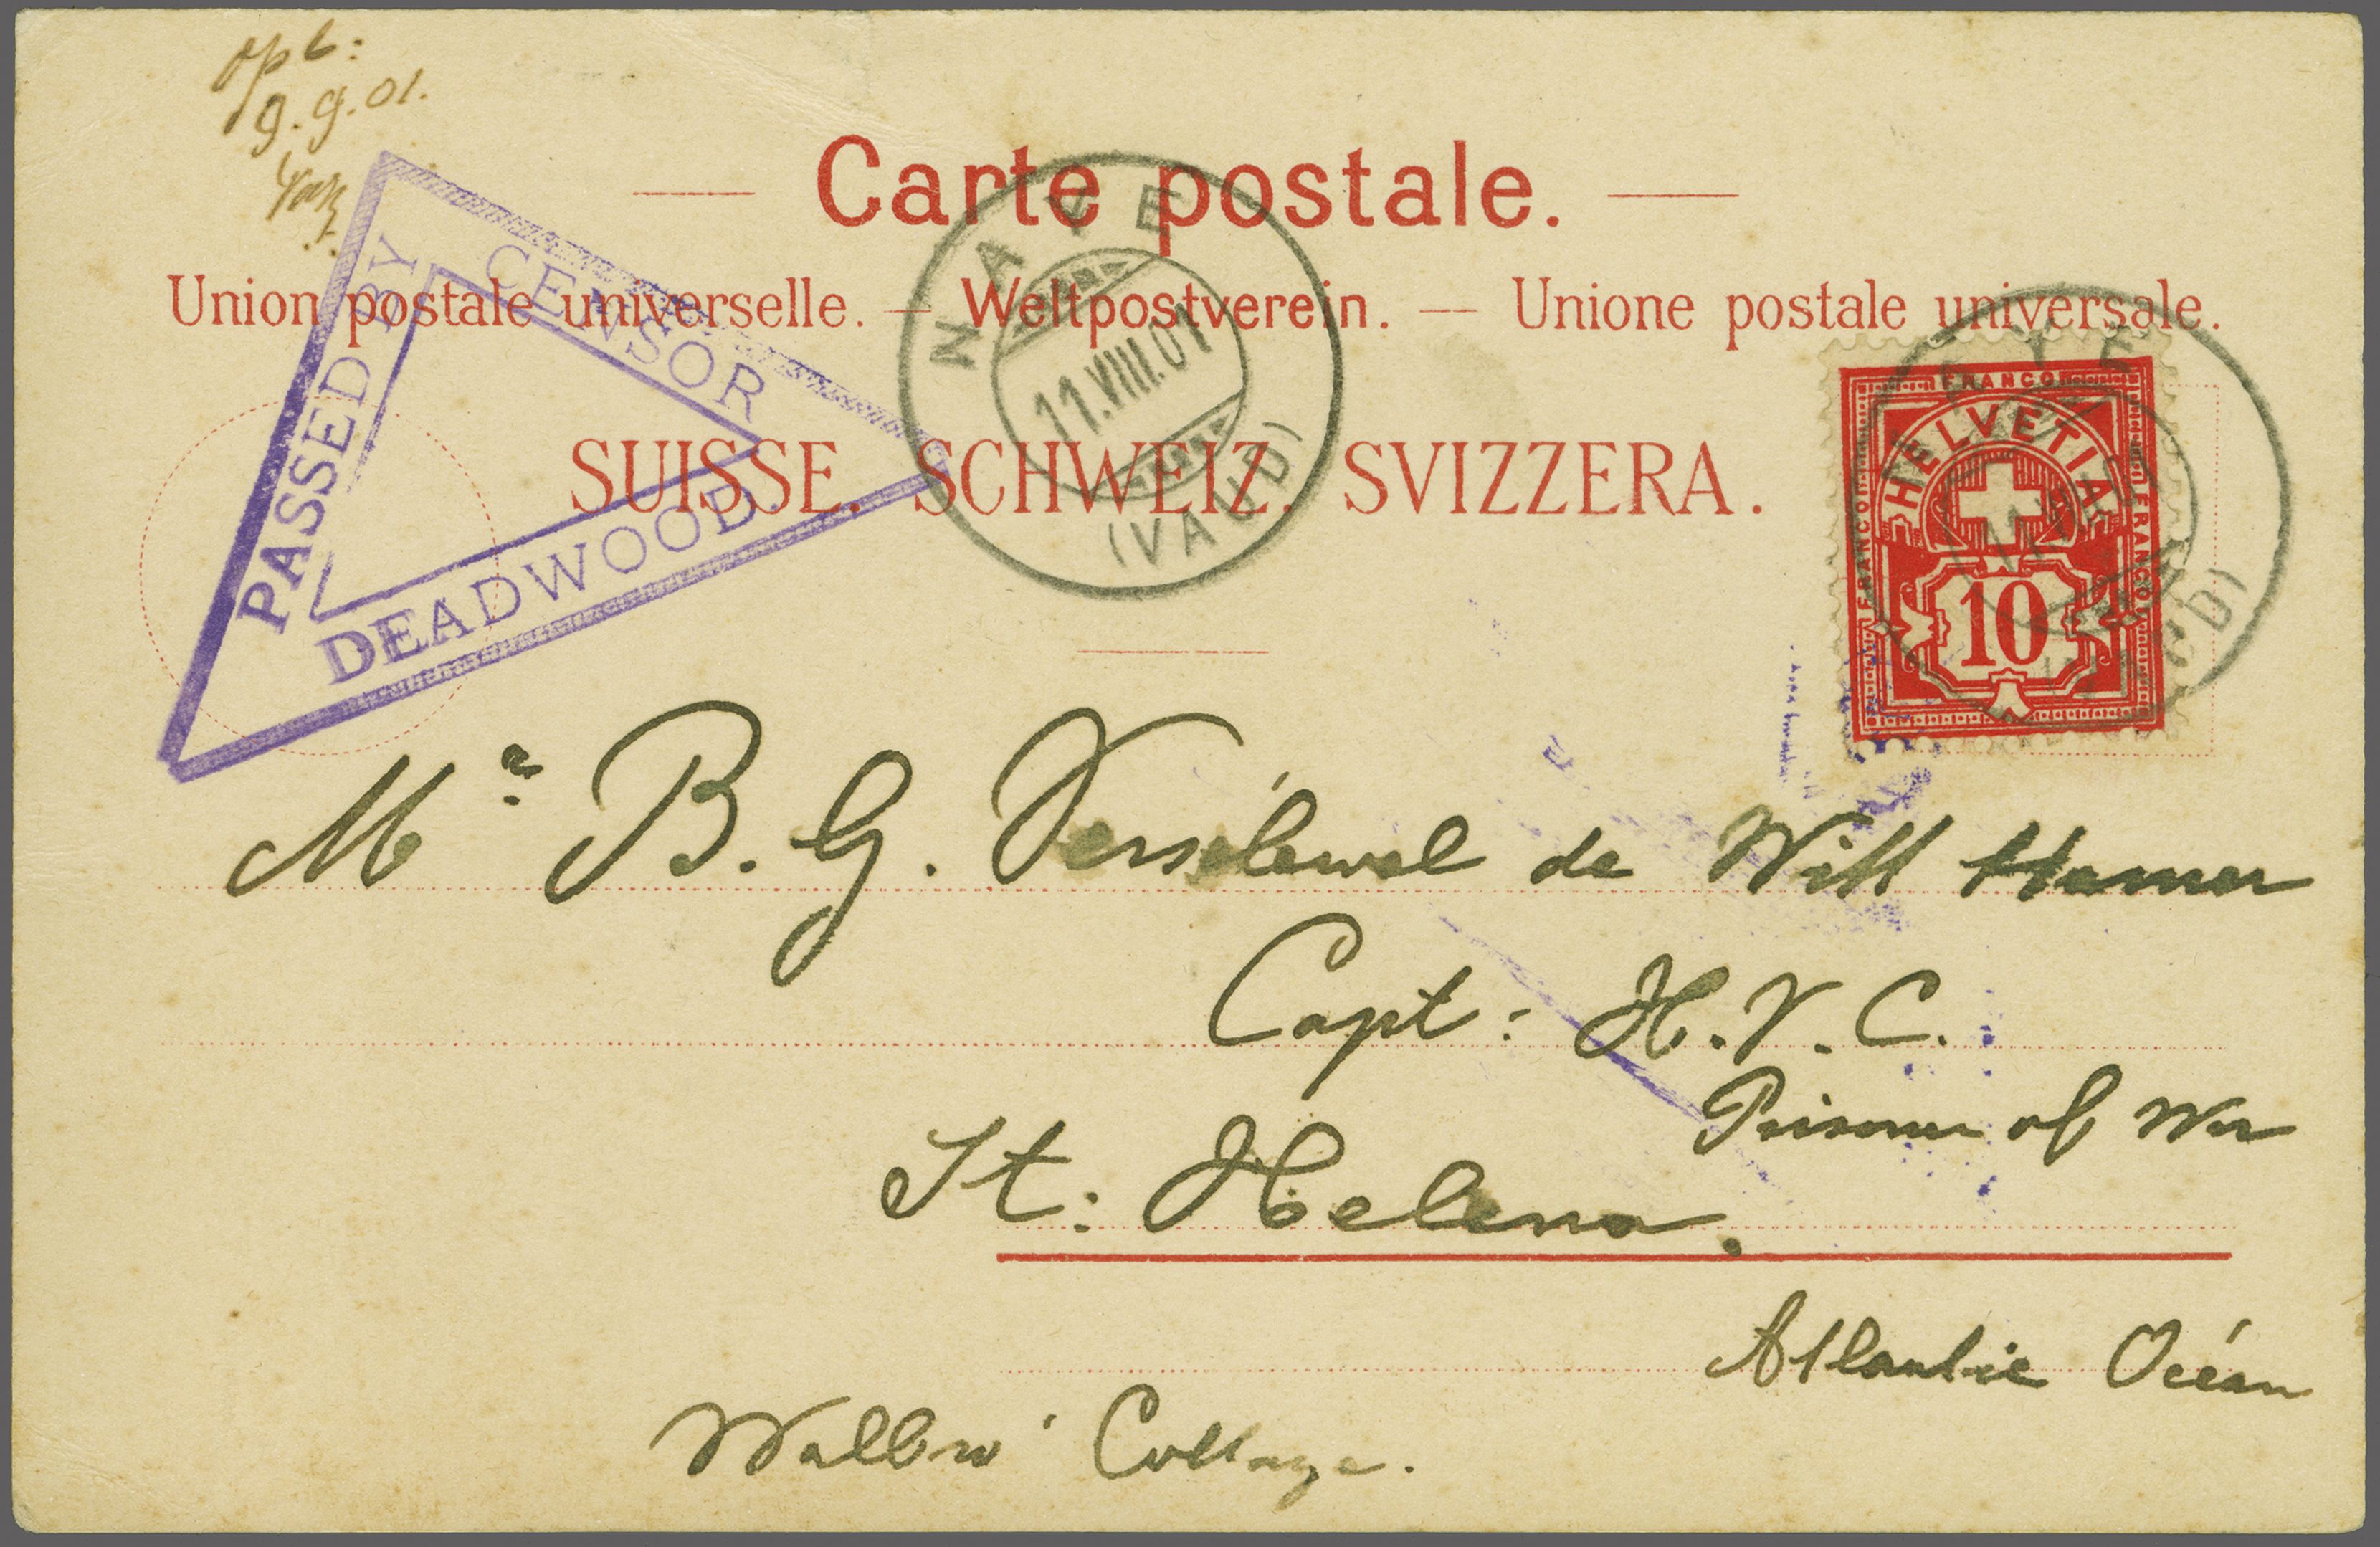 opb:
9.9.01.
Carte postale.
Union postale universelle. — Weltpostverein. — Unione postale universale.
SUISSE. SCHWEIZ. SVIZZERA.
PASSED BY
CENSOR
DEADWOOD.
NAYE
11.VIII.01
(VAUD)
FRANCO
FRANCO
FRANCO
HELVETIA
10
Mr B. G. Versélewel de Witt Hamer
Capt: H.V.C.
Prisoner of War
St: Helena.
Atlantic Océan
Cottage.